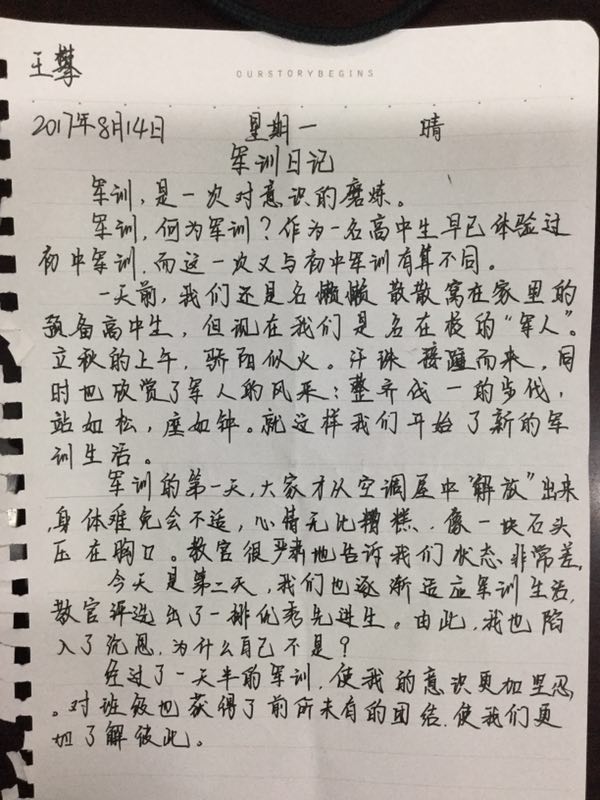 王攀
OURSTORYBEGINS
2017年8月14日 星期一 晴
军训日记
军训,是一次对意识的磨炼。
军训,何为军训?作为一名高中生早已体验过
初中军训,而这一次又与初中军训有算不同。
一天前,我们还是名懒懒散散窝在家里的
预备高中生,但现在我们是名在校的“军人”。
立秋的上午,骄阳似火。汗珠接踵而来,同
时也欣赏了军人的风采:整齐伐一的步伐,
站如松,座如钟。就这样我们开始了新的军
训生活。
军训的第一天,大家才从空调屋中“解放”出来
,身体难免会不适,心情无比糟糕、像一块石头
压在胸口。教官很严肃地告诉我们状态非常差,
今天是第二天,我们也逐渐适应军训生活,
教官评选出了一排优秀先进生。由此,我也陷
入了沉思,为什么自己不是?
经过了一天半的军训,使我的意识更加坚忍
。对班级也获得了前所未有的团结,使我们更
加了解彼此。